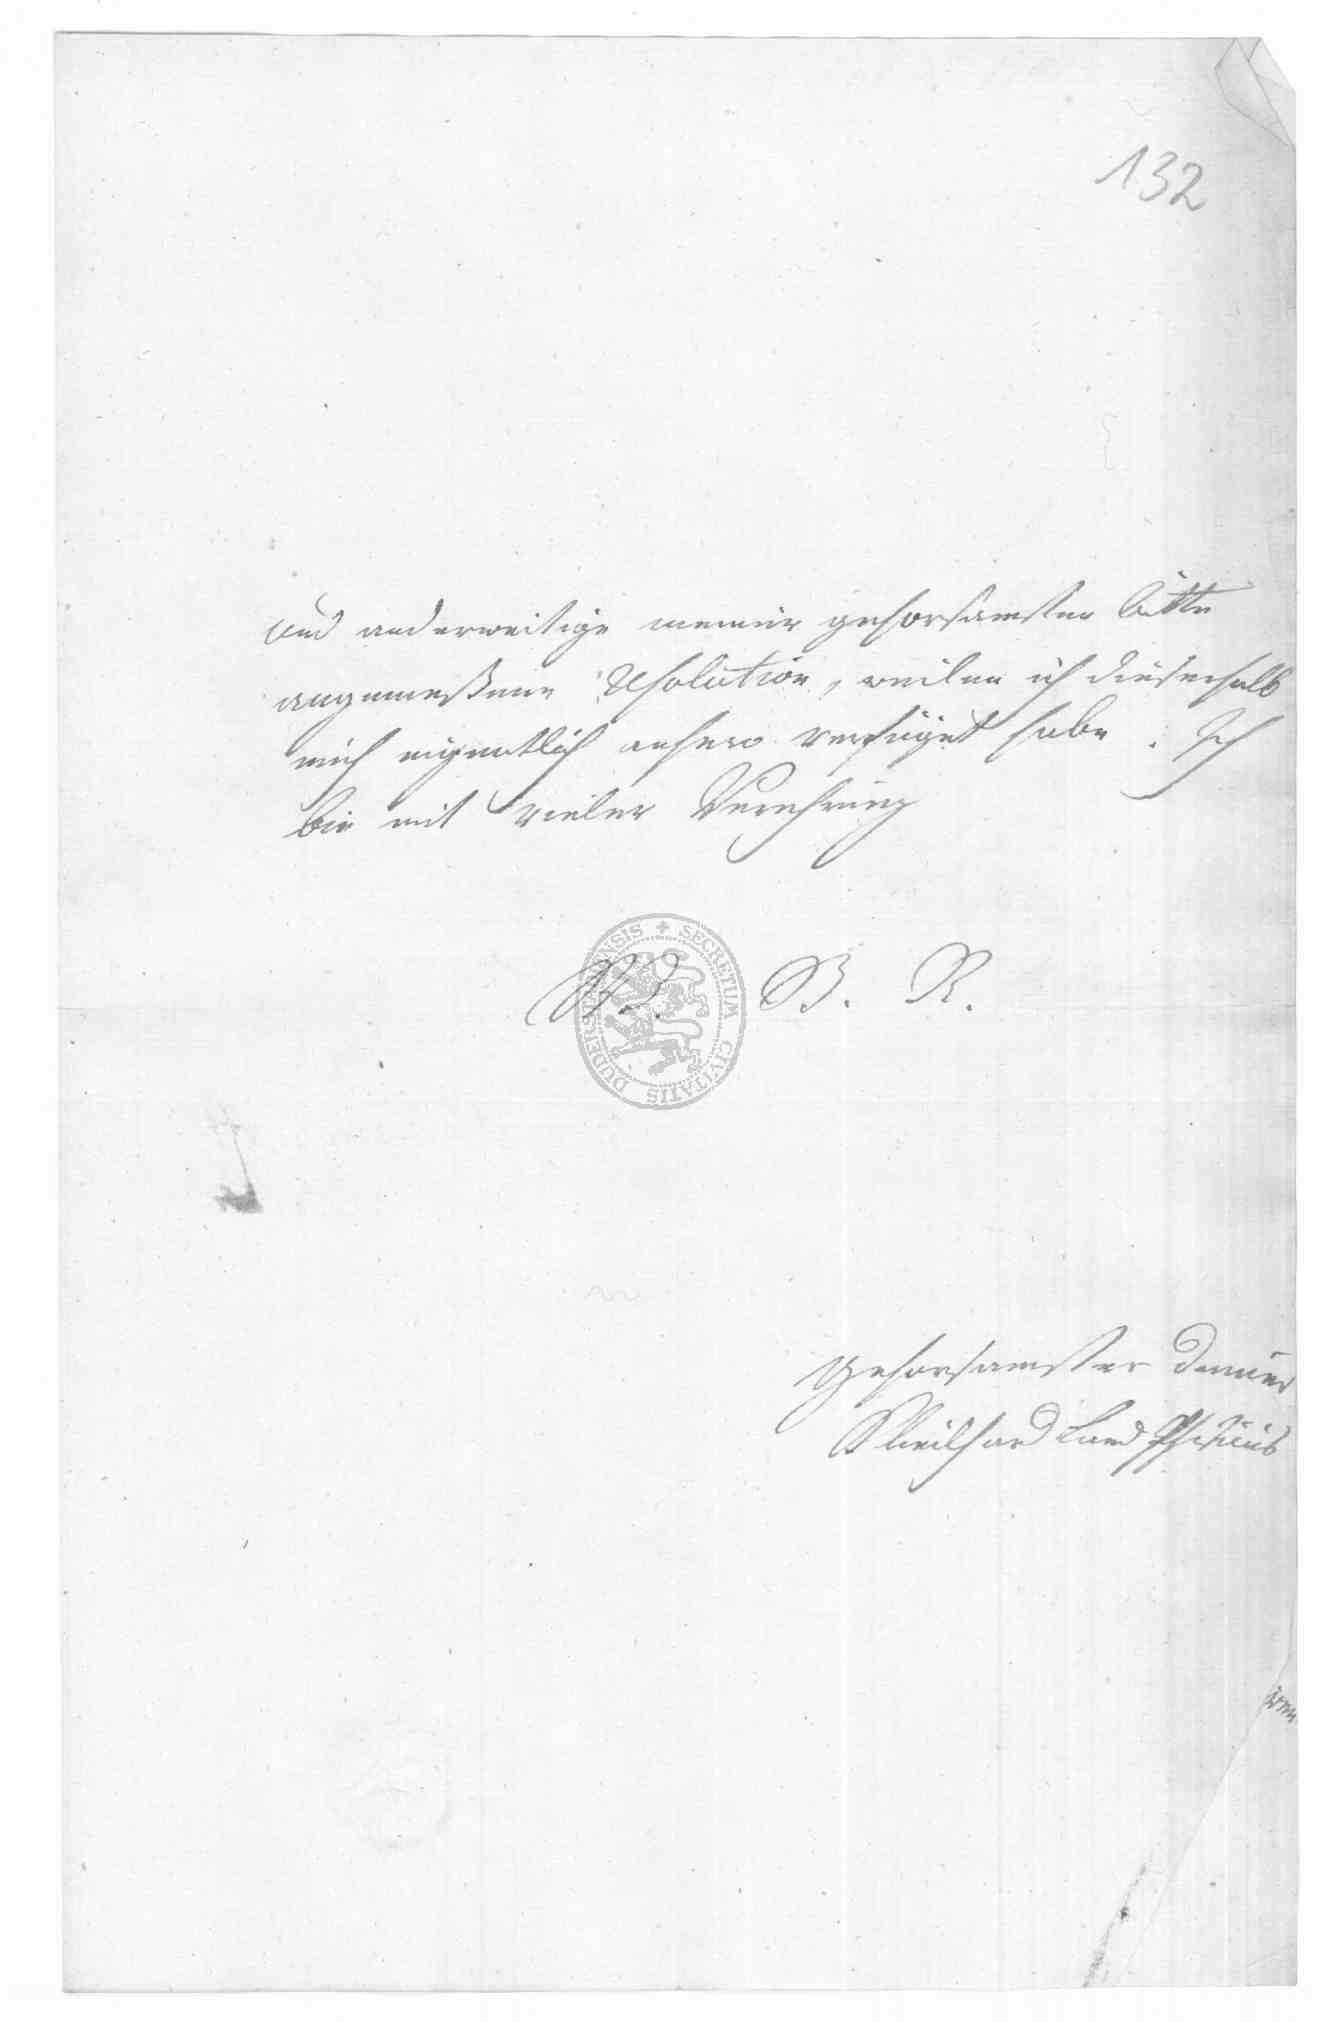 132
und anderweitige meiner gehorsamsten bitte
angemeßene Resolution, weilen ich dieserhalb
mich eigentlich anhero verfüget habe. Ich
bin mit vieler Verehrung
B. R.
SECRETUM CIVITATIS DUDERSTADENSIS
gehorsamster Diener
Land Phisicus